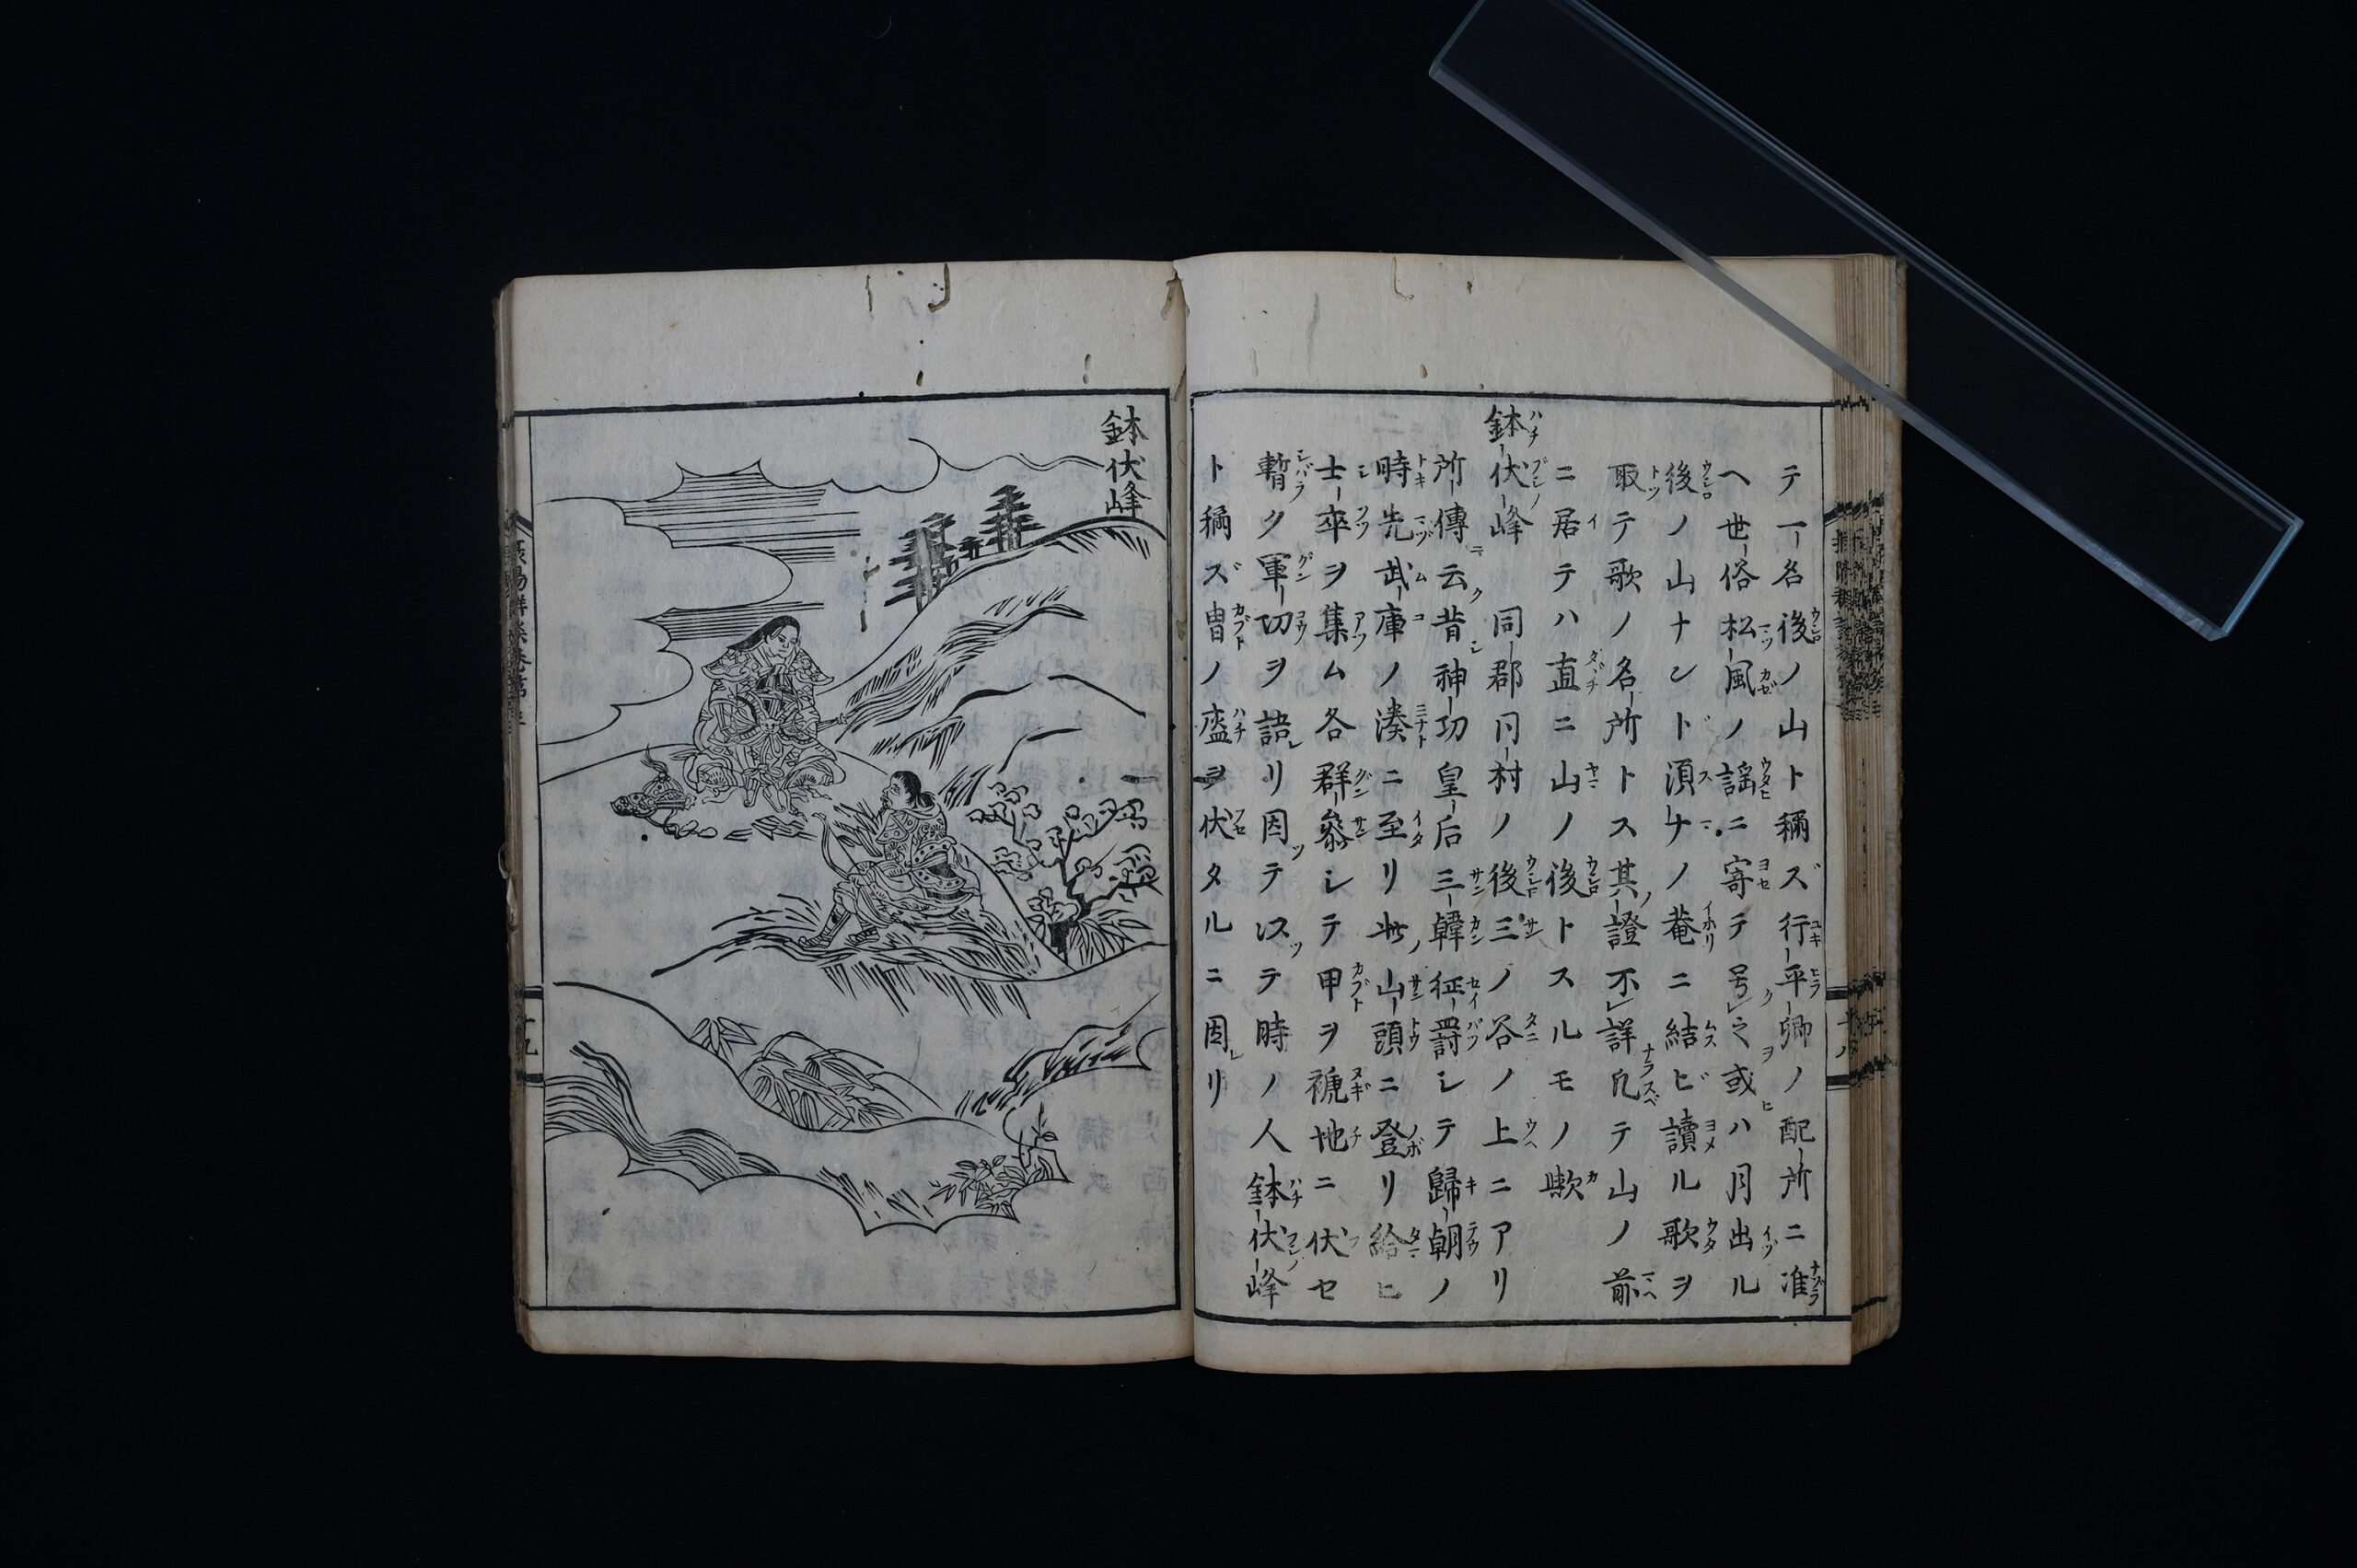 テ一名後ノ山ト稱ズ行平卿ノ配所ニ准
ヘ世俗松風ノ謡ニ寄テ号之或ハ月出ル
後ノ山ナンド湏广ノ菴ニ結ビ讀ル歌ヲ
取テ歌ノ名所トス其證不詳凡テ山ノ前
ニ居テハ直ニ山ノ後トスルモノ歟
鉢伏峰 同郡同村ノ後三ノ谷ノ上ニアリ
所傳云昔神功皇后三韓征罸シテ歸朝ノ
時先武庫ノ湊ニ至リ此山頭ニ登リ給ヒ
士卒ヲ集ム各群參シテ甲ヲ褫地ニ伏セ
暫ク軍功ヲ語リ因テ以テ時ノ人鉢伏峰
ト稱ズ冑ノ盔ヲ伏タルニ因リ
鉢伏峰